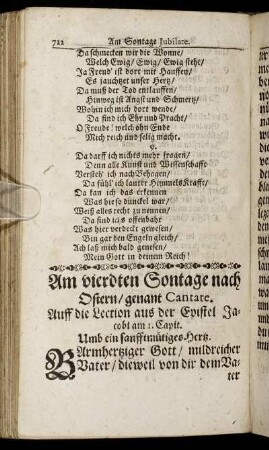 722 Am Sontage Jubilate.
Da schmecken wir die Wonne/
Welch Ewig/ Ewig/ Ewig stehe/
Ja Freud' ist dort mit Hauffen/
Es jauchtzet unser Hertz/
Da muß der Tod entlauffen/
Hinweg ist Angst und Schmertz/
Wohin ich mich dort wende/
Da sind ich Ehr und Pracht/
O Freude! welch ohn Ende
Mich reich und selig macht.
9.
Da darff ich nichts mehr fragen/
Denn alle Kunst und Wissenschafft
Versteh' ich nach Behagen/
Da fühl' ich lautre Himmels Krafft/
Da kan ich das erkennen
Was hie so dunckel war/
Weiß alles recht zu nennen/
Da sind ichs offenbahr
Was hier verdeckt gewesen/
Bin gar den Engeln gleich/
Ach laß mich bald genesen/
Mein Gott in deinem Reich!
Am vierdten Sontage nach
Ostern/ genant Cantate.
Auff die Lection aus der Epystel Ja-
cobi am 1. Capit.
Umb ein sanfftmütiges Hertz.
BArmhertziger Gott/ mildreicher
Vater/ dieweil von dir dem Va-
ter